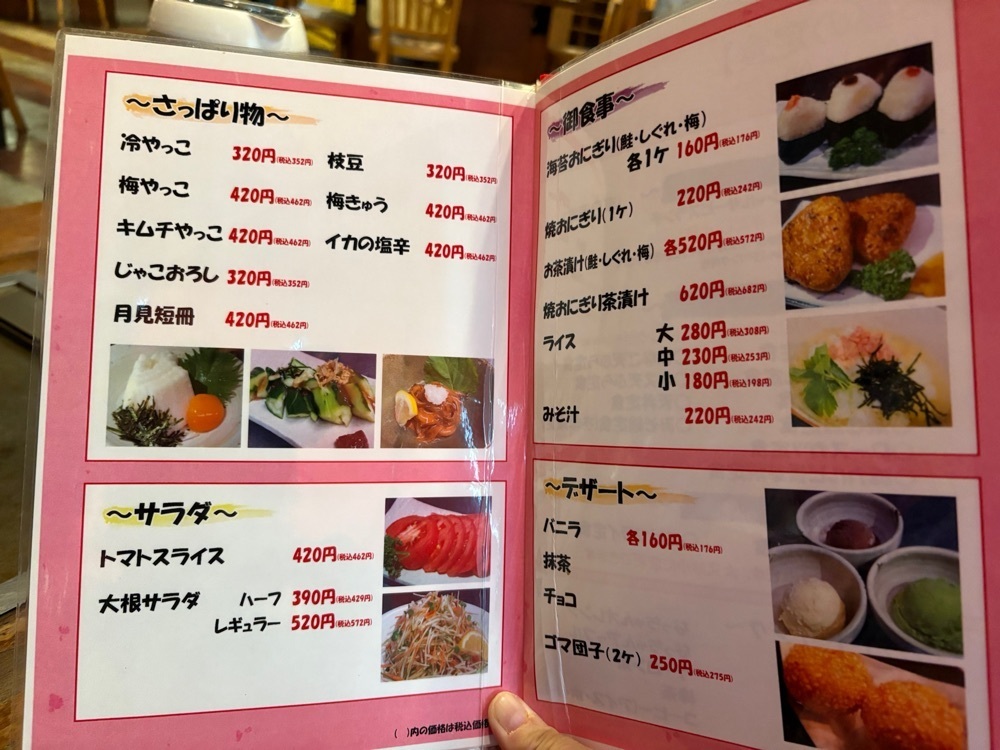 ～さっぱり物～
冷やっこ 320円(税込352円)
梅やっこ 420円(税込462円)
キムチやっこ 420円(税込462円)
じゃこおろし 320円(税込352円)
月見短冊 420円(税込462円)
枝豆 320円(税込352円)
梅きゅう 420円(税込462円)
イカの塩辛 420円(税込462円)
～サラダ～
トマトスライス 420円(税込462円)
大根サラダ ハーフ 390円(税込429円)
レギュラー 520円(税込572円)
( )内の価格は税込価格
～御食事～
海苔おにぎり(鮭・しぐれ・梅)
各1ケ 160円(税込176円)
焼おにぎり(1ケ) 220円(税込242円)
お茶漬け(鮭・しぐれ・梅) 各520円(税込572円)
焼おにぎり茶漬け 620円(税込682円)
ライス 大 280円(税込308円)
中 230円(税込253円)
小 180円(税込198円)
みそ汁 220円(税込242円)
～デザート～
バニラ 各160円(税込176円)
抹茶
チョコ
ゴマ団子(2ケ) 250円(税込275円)